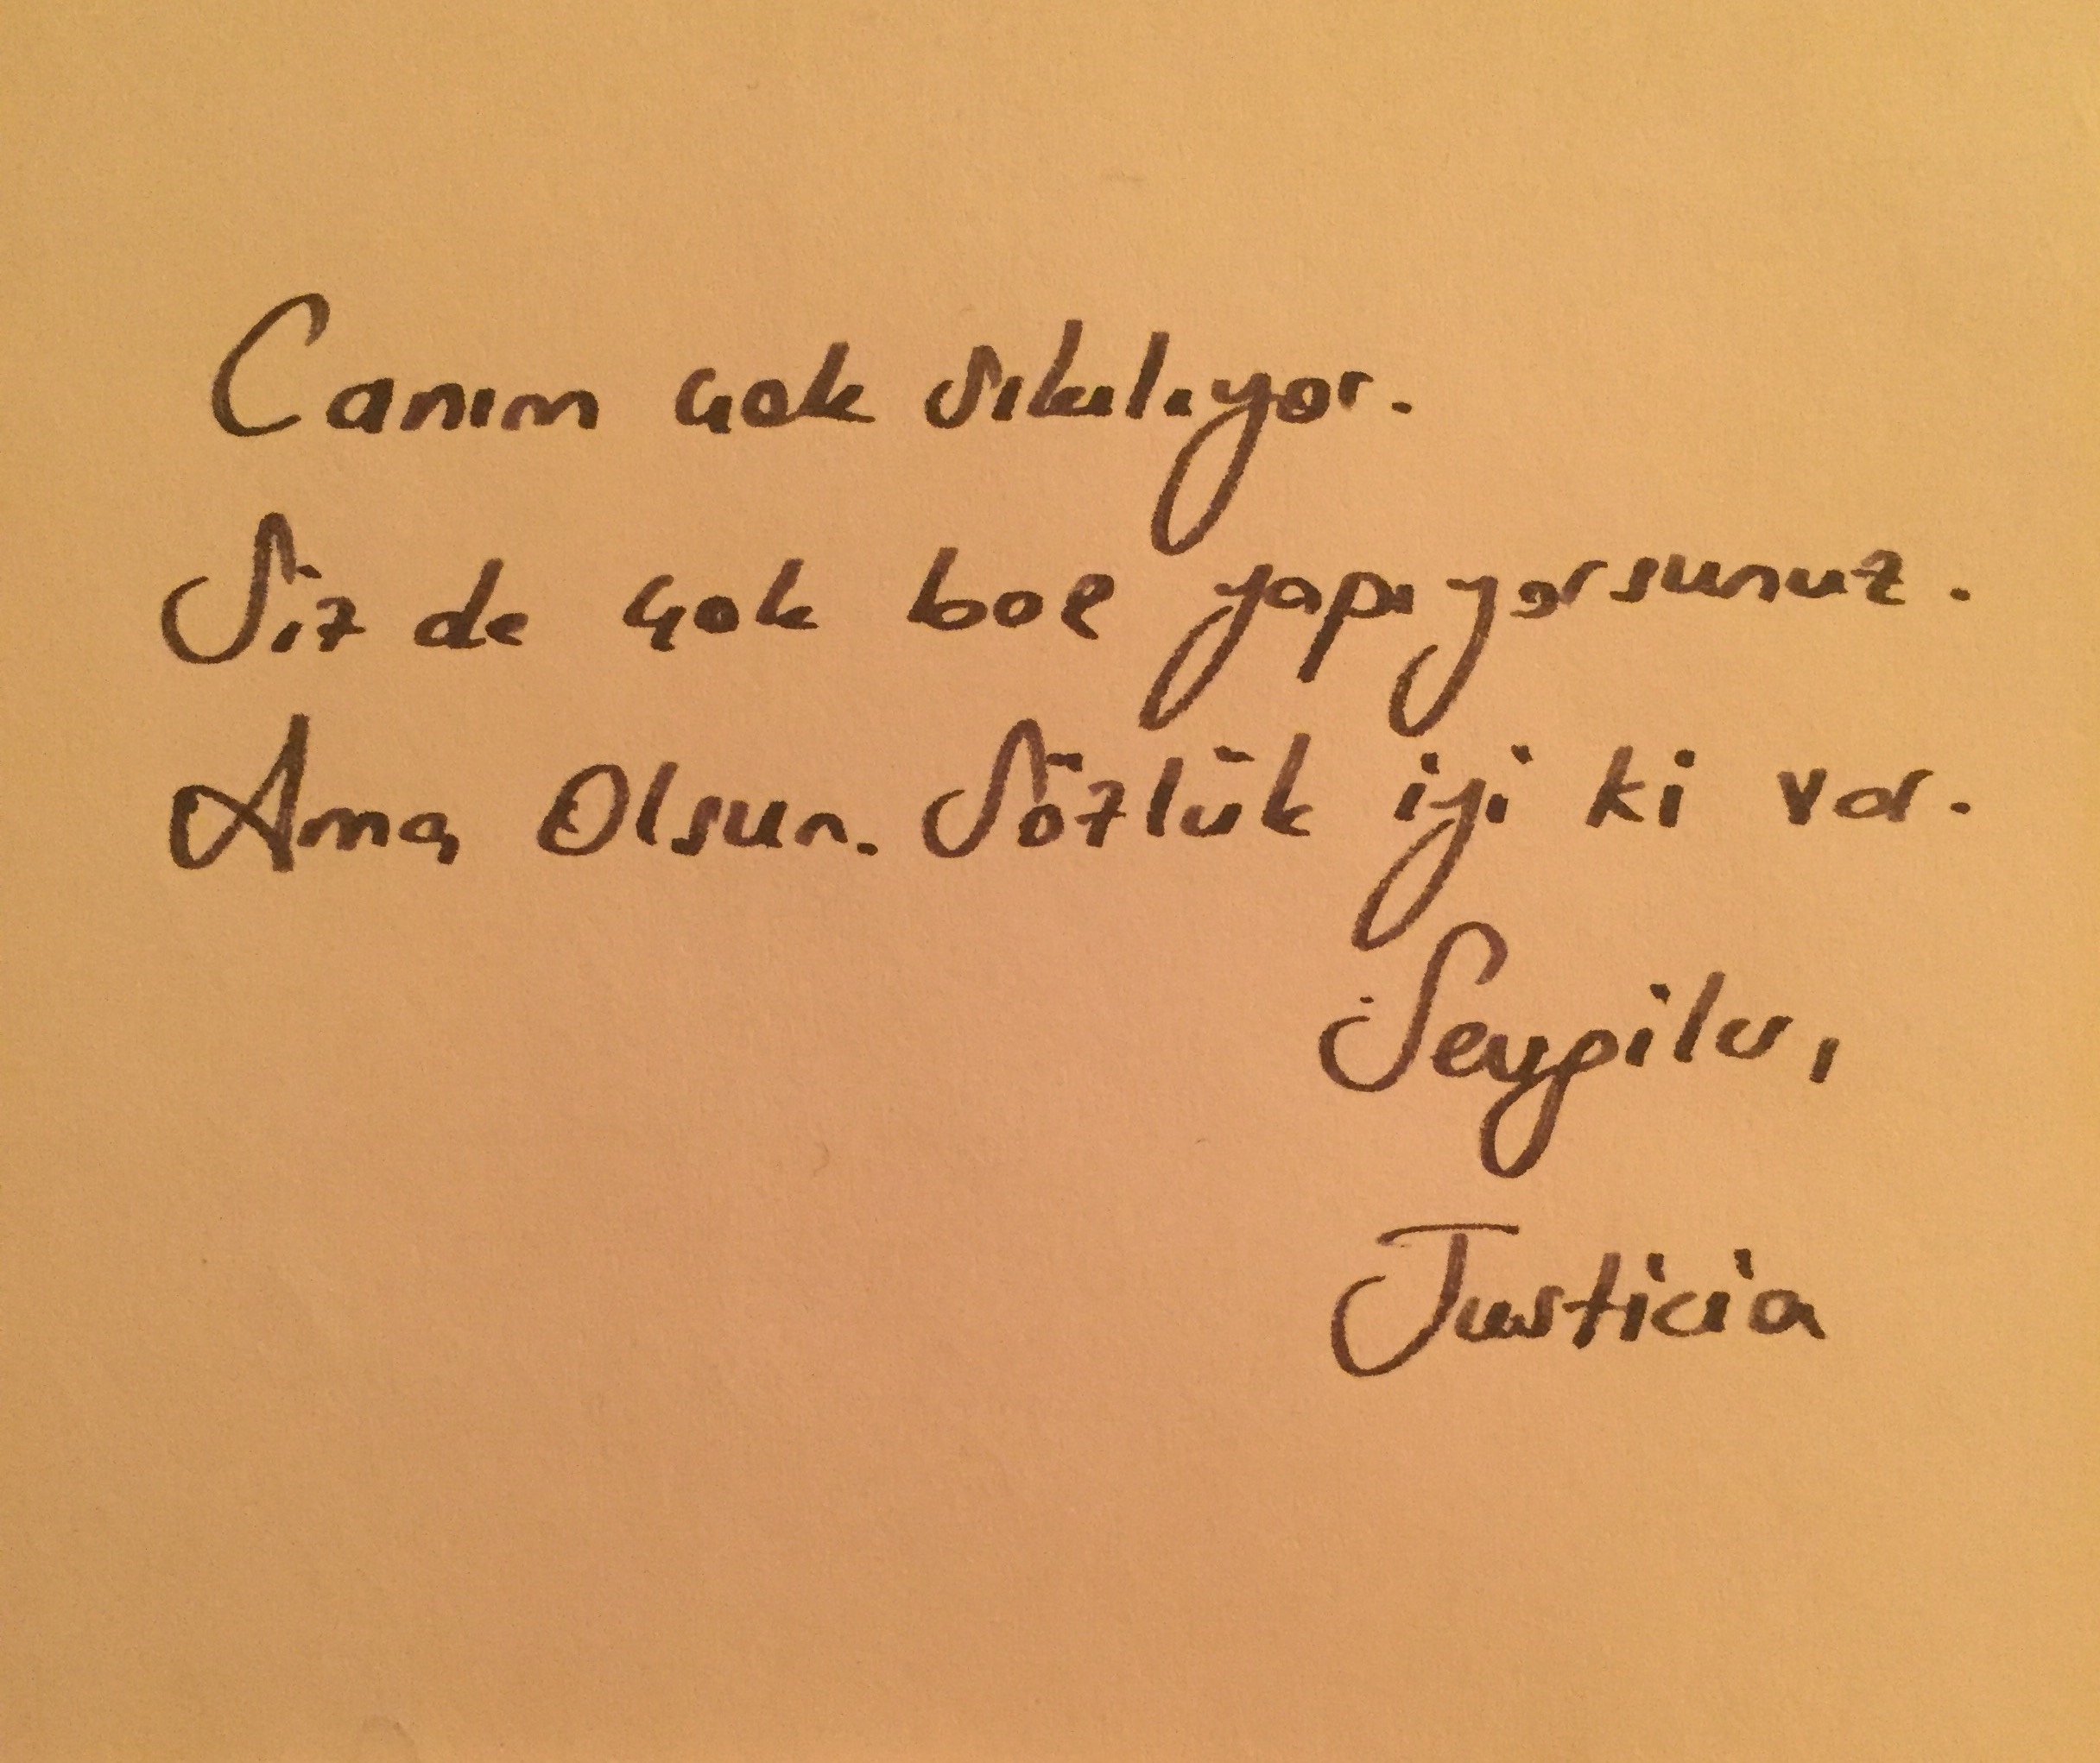 Canım çok sıkılıyor.
Siz de çok boş yapıyorsunuz.
Ama Olsun. Sözlük iyi ki var.
Saygılar,
Justicia